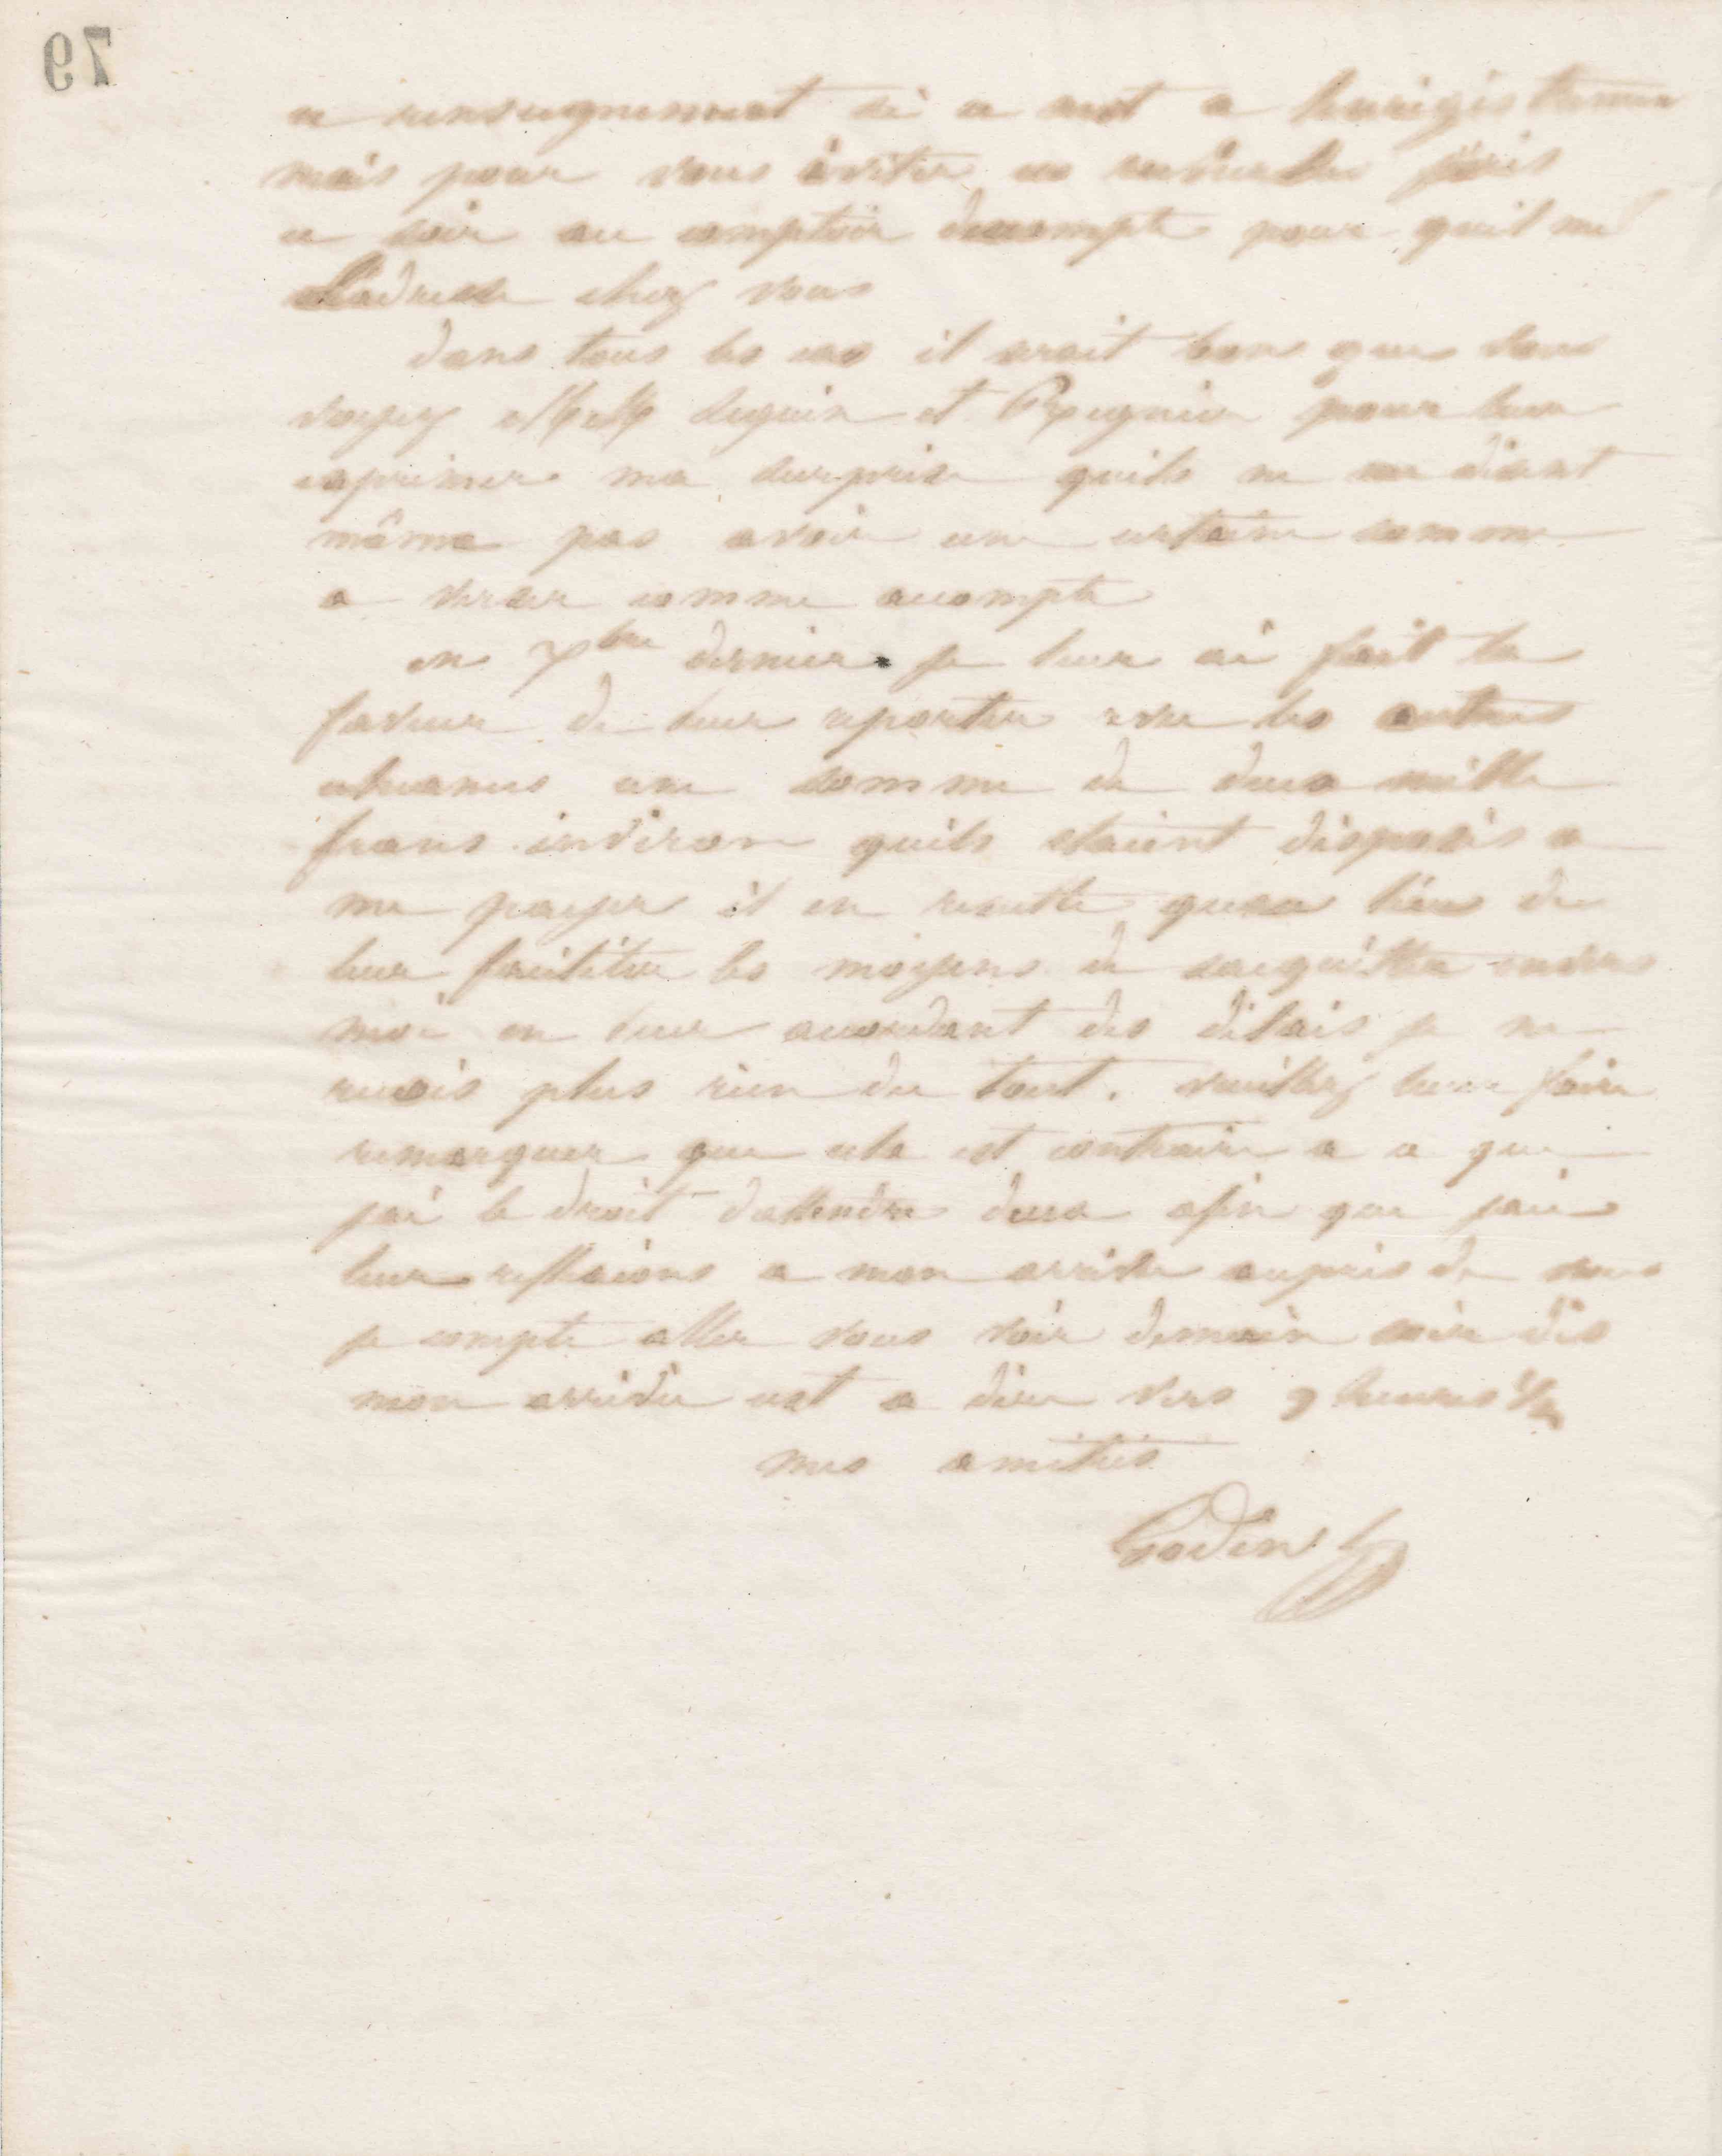 79
ce renseignement si ce nest a lenrigistrement
mais pour vous éviter ces recherches jécris
ce soir au comptoir descompte pour quil me
ladresse chez vous
dans tous les cas il serait bon que vous
voyez MM Seguin et Regnier pour leur
exprimer ma surprise quils ne me disent
même pas avoir une certaine somme
a verser comme acompte
en Xbre dernier je leur ai fait la
faveur de leur reporter avec les autres
echeances une somme de deux mille
francs environ quils étaient disposés a
me payer il en resulte quau lieu de
leur faciliter les moyens de sacquitter envers
moi en leur accordant des délais je ne
recois plus rien du tout. veuillez leur faire
remarquer que cela est contraire a ce que
jai le droit dattendre deux afin que jaie
leurs reflexions a mon arrivée aupres de vous
je compte aller vous voir demain soir dès
mon arrivée cest a dire vers 9 heures 1/2
mes amitiés
Godin